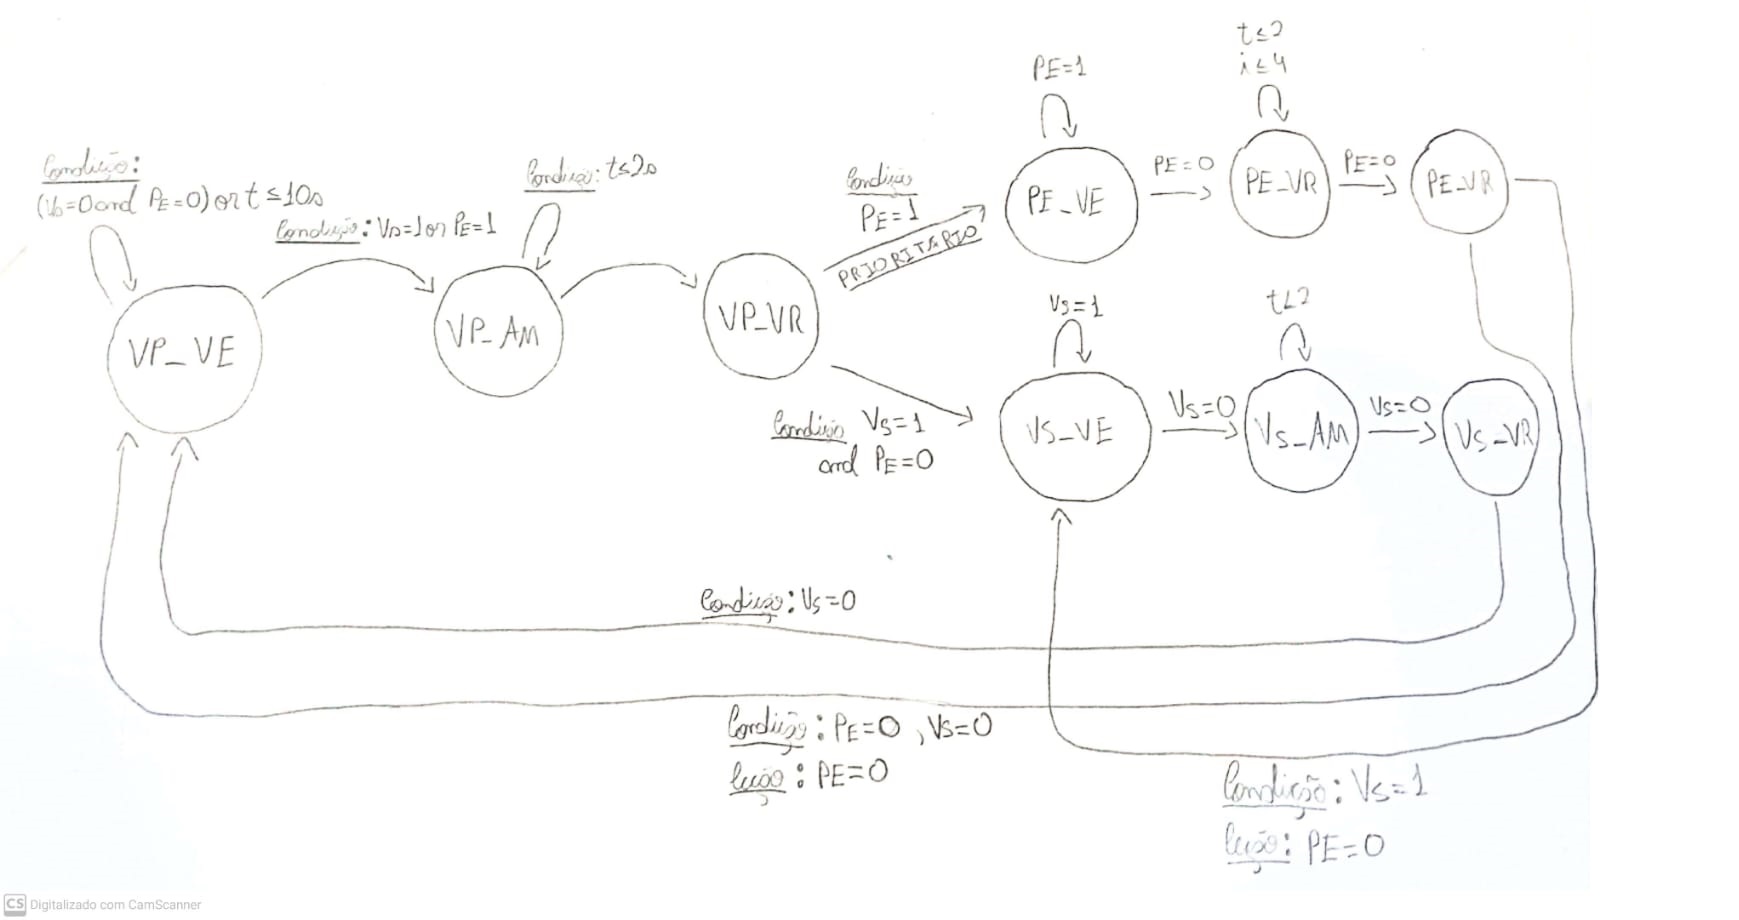 Condição:
(Vs=0 and PE=0) or t ≤ 10s
Condição: Vs=1 or PE=1
Condição: t≤2s
Condição
PE=1
PRIORITÁRIO
PE=1
t≤2
i≤4
PE_VE
PE=0
PE_VR
PE=0
PE_VR
VP_VE
VP_AM
VP_VR
Condição Vs=1
and PE=0
Vs=1
t<2
VS_VE
Vs=0
Vs_AM
Vs=0
Vs_VR
Condição: Vs=0
Condição: PE=0, Vs=0
PE=0
Condição: Vs=1
PE=0
CS Digitalizado com CamScanner